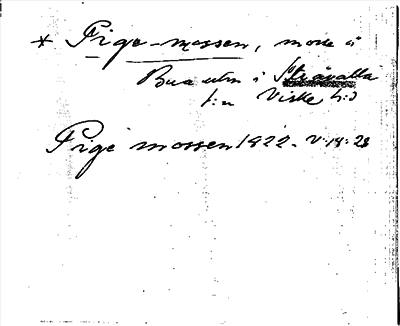 * Pige-mossen, mosse å
Bua utm. i Stråvalla
s:n Viske h:d
Pige mossen 1822. V:18:23